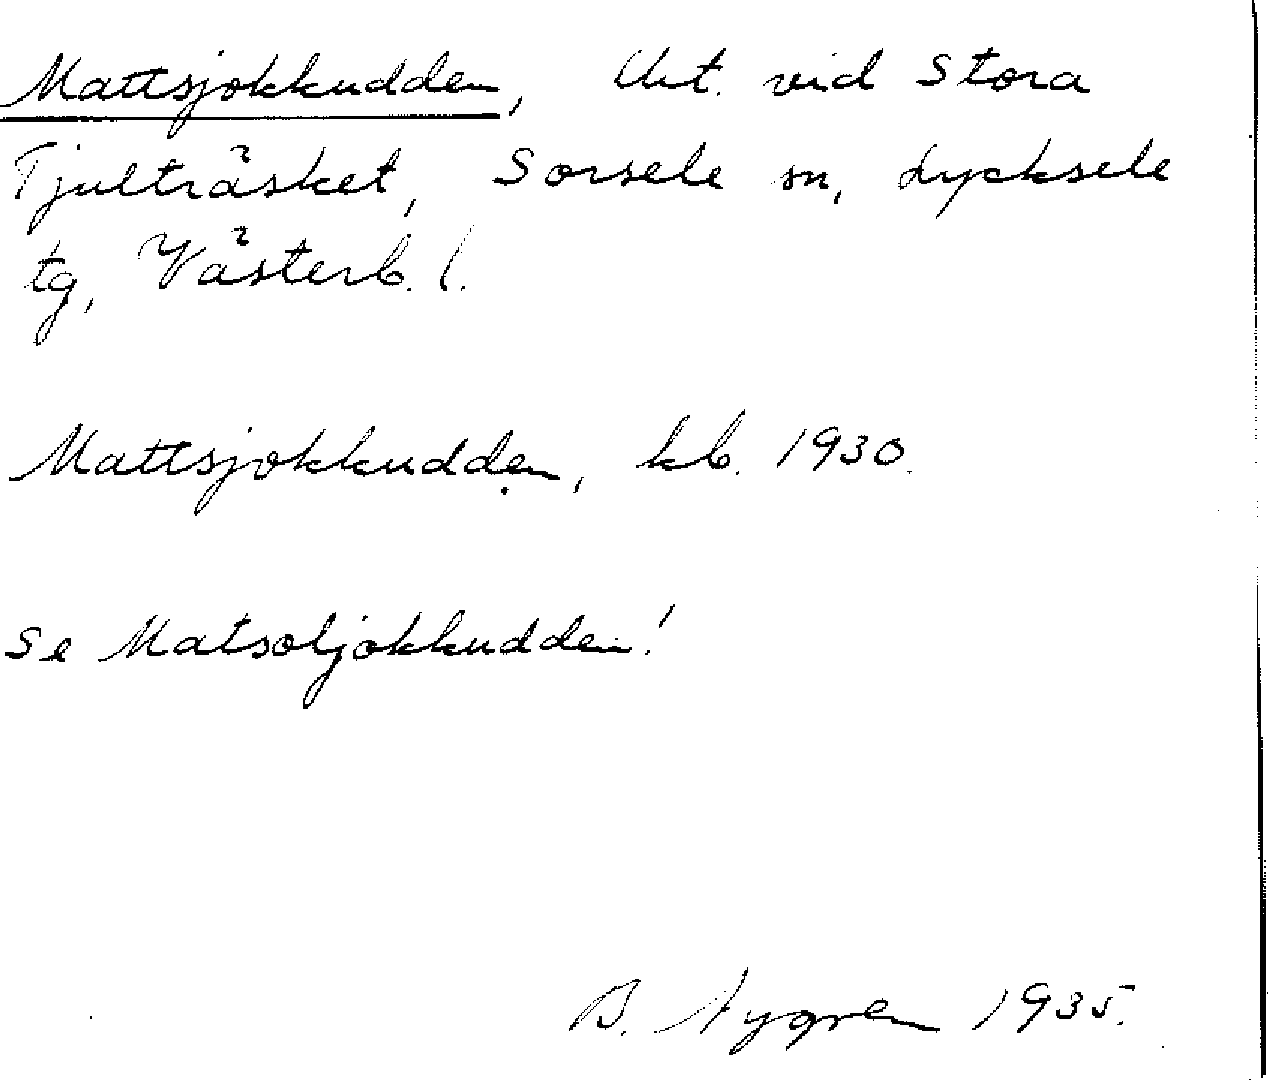 Mattsjokkudden, Urt. vid Stora
Tjulträsket, Sorsele sn, Lycksele
tg, Västerb. l.
Mattsjokkudden, kb. 1930.
se Matsoljokkudden!
B. Nygren 1935.